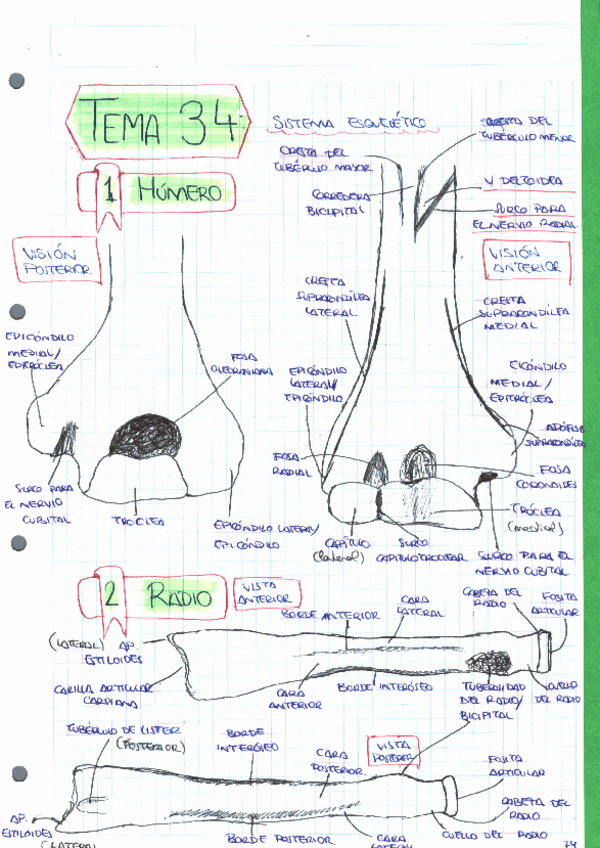 TEMA 34
SISTEMA ESQUELÉTICO
CRESTA DEL
TUBÉRCULO MENOR
CRESTA DEL
TUBÉRCULO MAYOR
1 HÚMERO
CORREDERA
BICIPITAL
V DELTOIDEA
SURCO PARA
EL NERVIO RADIAL
VISIÓN
POSTERIOR
VISIÓN
ANTERIOR
CRESTA
SUPRACONDÍLEA
LATERAL
CRESTA
SUPRACONDÍLEA
MEDIAL
EPICÓNDILO
MEDIAL/
EPITRÓCLEA
FOSA
OLECRANIANA
EPICÓNDILO
LATERAL/
EPICÓNDILO
EICÓNDILO
MEDIAL/
EPITRÓCLEA
APÓFISIS
SUPRACONDÍLEA
FOSA
RADIAL
FOSA
CORONOIDES
SURCO PARA
EL NERVIO
CUBITAL
TRÓCLEA
EPICÓNDILO LATERAL/
EPICÓNDILO
CAPÍTULO
(lateral)
SURCO
CAPITULOTROCLEAR
TRÓCLEA
(medial)
SURCO PARA EL
NERVIO CUBITAL
2 RADIO
VISTA
ANTERIOR
BORDE ANTERIOR
CARA
LATERAL
CABEZA DEL
RADIO
FOSITA
ARTICULAR
(LATERAL) AP.
ESTILOIDES
CARILLA ARTICULAR
CARPIANA
CARA
ANTERIOR
BORDE INTERÓSEO
TUBEROSIDAD
DEL RADIO/
BICIPITAL
CUELLO
DEL RADIO
TUBÉRCULO DE LISTER
(POSTERIOR)
BORDE
INTERÓSEO
CARA
POSTERIOR
VISTA
POSTERIOR
FOSITA
ARTICULAR
CABEZA DEL
RADIO
AP.
ESTILOIDES
(LATERAL
BORDE POSTERIOR
CARA
LATERAL
CUELLO DEL RADIO